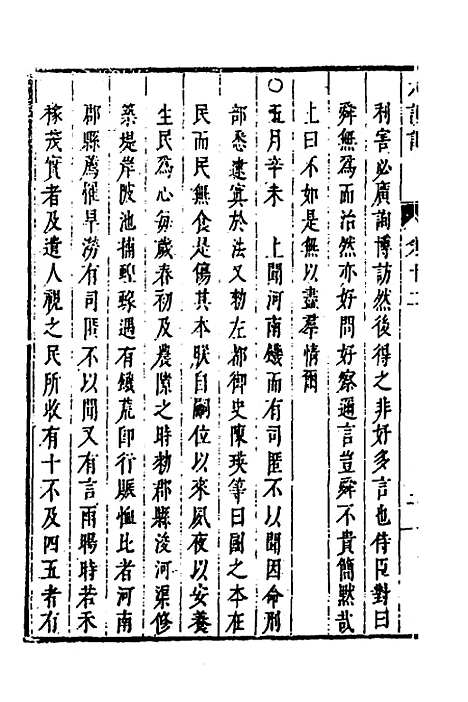 利害必廣詢博訪然後得之非好多言也侍臣對曰
舜無為而治然亦好問好察邇言豈舜不貴簡默哉
上曰不如是無以盡羣情爾
○五月辛未　上聞河南饑而有司匿不以聞因命刑
部悉逮寘於法又勑左都御史陳瑛等曰國之本在
民而民無食是傷其本朕自嗣位以來夙夜以安養
生民為心每歲春初及農隙之時勑郡縣浚河渠修
築堤岸陂池捕蝗蝝遇有饑荒即行賑恤比者河南
郡縣薦罹旱澇有司匿不以聞又有言雨暘時若禾
稼茂實者及遣人視之民所收有十不及四五者有